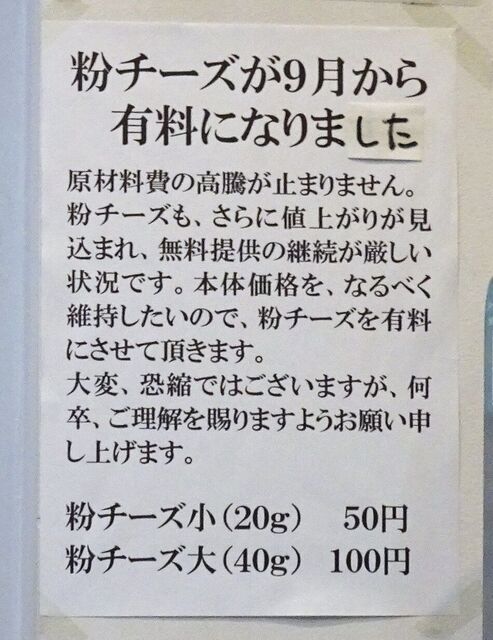 粉チーズが9月から
有料になりました
原材料費の高騰が止まりません。
粉チーズも、さらに値上がりが見
込まれ、無料提供の継続が厳しい
状況です。本体価格を、なるべく
維持したいので、粉チーズを有料
にさせて頂きます。
大変、恐縮ではございますが、何
卒、ご理解を賜りますようお願い申
し上げます。
粉チーズ小(20g) 50円
粉チーズ大(40g) 100円